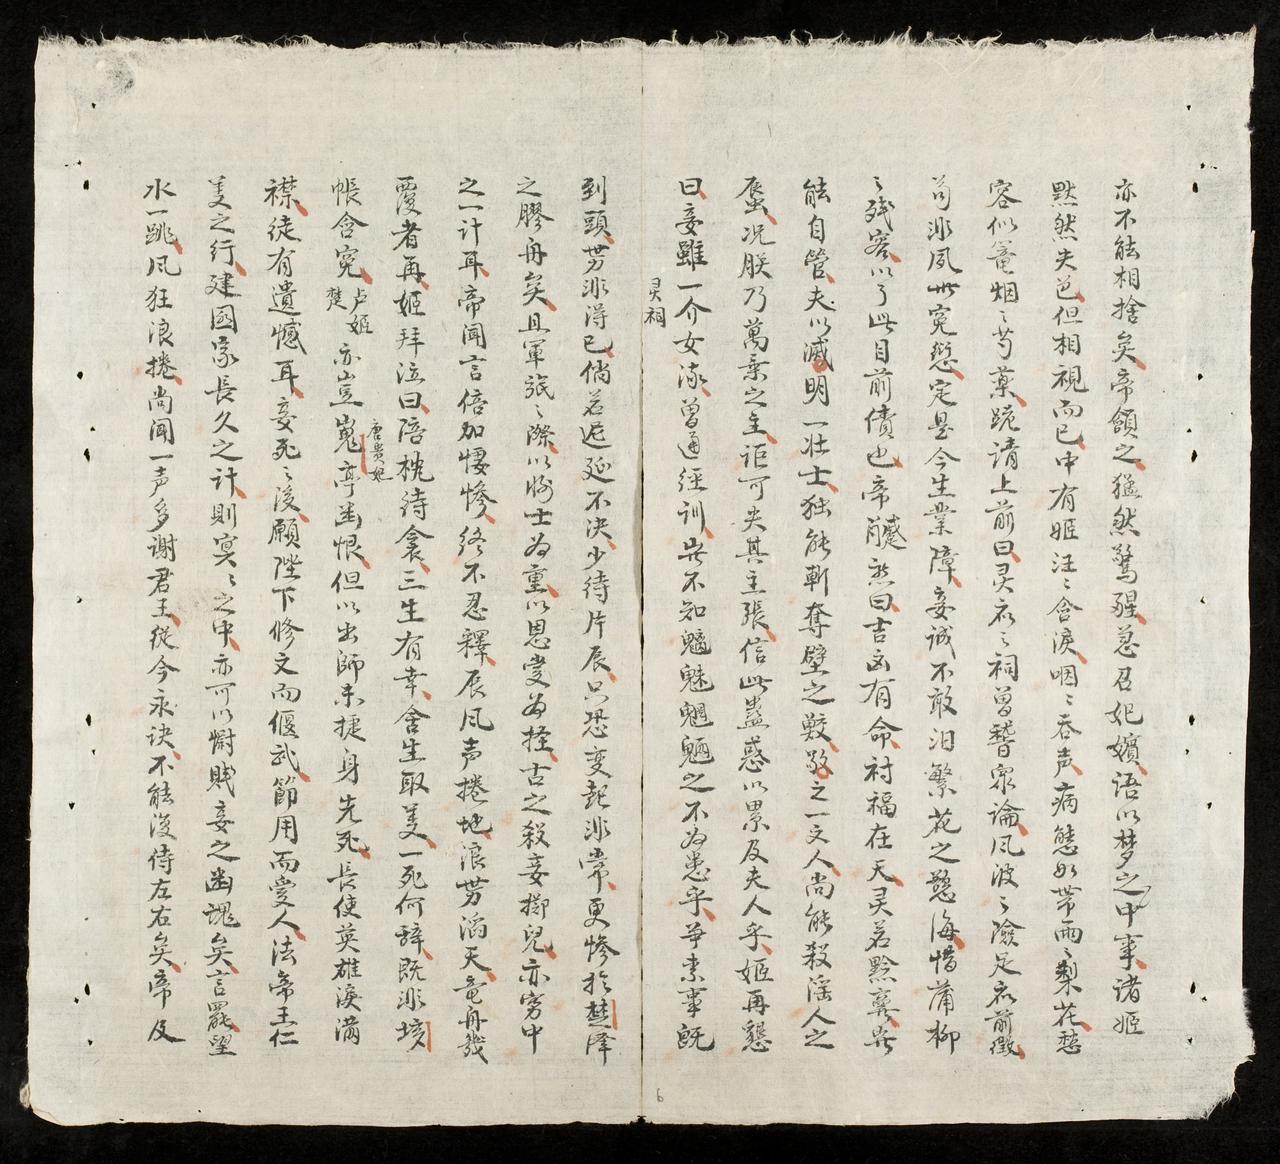 亦不能相捨矣帝頷之猛然驚醒急召妃嬪語以梦之中事諸姬
黙然失色但相視而已中有姬汪〻含淚咽〻吞声病態如帶雨〻梨花愁
容似篭烟〻芍藥跪請上前曰灵
〻祠曽稽眾論風波〻險足
前徵
苟非夙世寃愆定是今生業障妾誠不敢泪繁花之
海惜蒲柳
〻残容以了此目前債也帝
然曰吉凶有命禍福在天灵若黙
能自管夫以滅明一壮士独能斬奪壁之
之一文人尚能殺滛人之
蜃况朕乃萬乗之主詎可失其主張信此蠱惑以累及夫人乎姬再懇
曰妾雖一介女流曽通經訓豈不知魑魅魍魎之不為患乎苐素事既
灵祠
到頭势非得已倘若迟延不決少待片辰只恐变起非常更惨於楚澤
之膠舟矣且軍旅〻際以將士為重以恩愛為
古之殺妾擲兒亦穷中
之一計耳帝闻言倍加悽惨終不忍釋辰風声捲地浪势滔天竜舟幾
覆者再姬拜泣曰陪枕待衾三生有幸舍生取義一死何辞既非
帳含寃
楚
卢姬
亦豈嵬亭幽恨但以出師未捷身先死長使英雄淚满
唐貴妃
襟徒有遺憾耳妾死〻後願陛下修文而偃武節用而愛人法帝王仁
義之行建國家長久之計則冥〻之中亦可以慰賎妾之幽魂矣言罷望
水一跳風狂浪捲尚闻一声多谢君王從今永诀不能復侍左右矣帝及